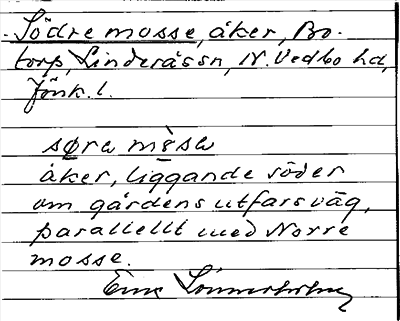 Södre mosse, åker, Bo-
torp, Linderåssn, N. Vedbo hd,
Jönk. l.
søra mòsa
åker, liggande söder
om gårdens utfarsväg,
parallellt med Norre
mosse.